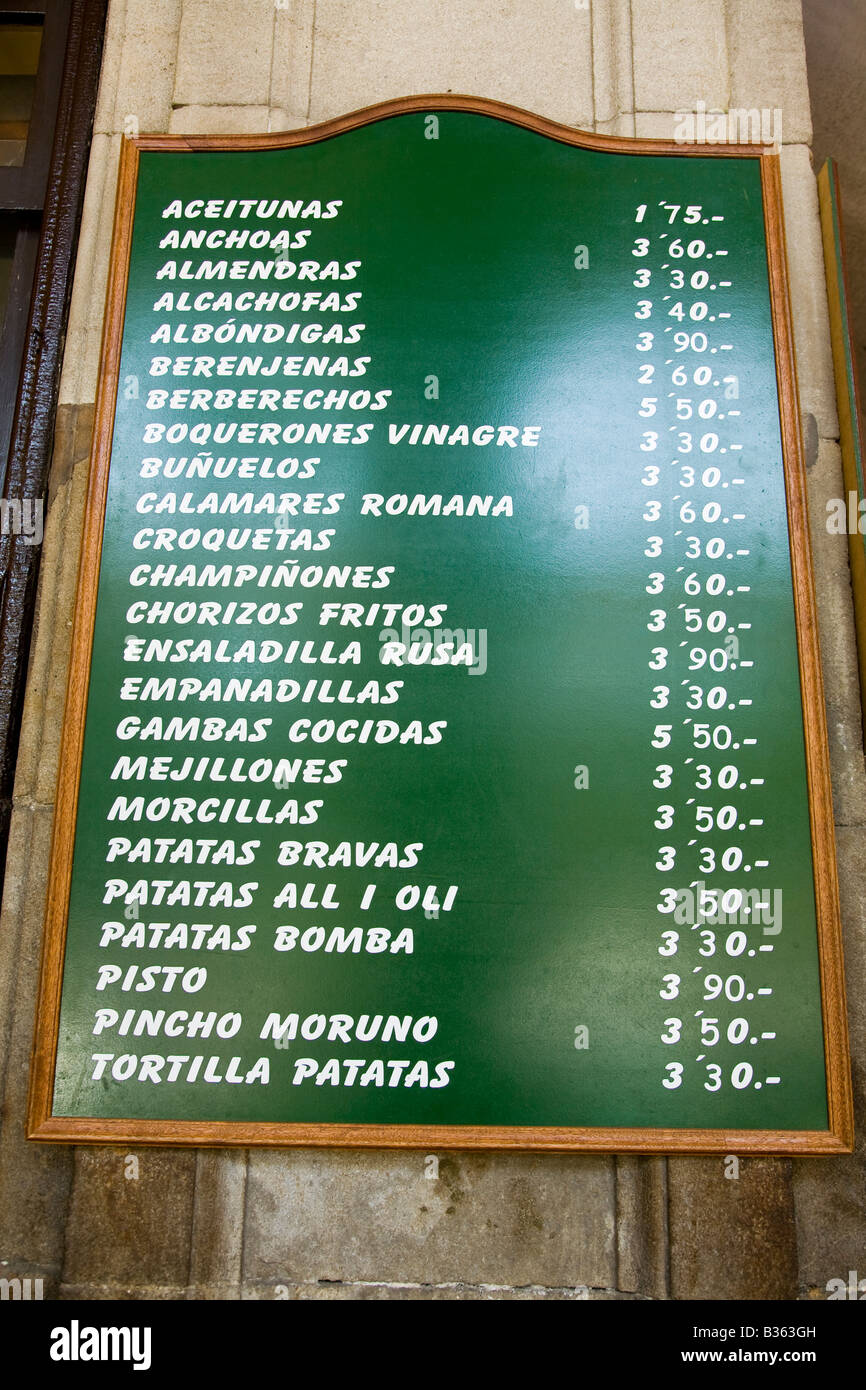 ACEITUNAS 1´75.-
ANCHOAS 3´60.-
ALMENDRAS 3´30.-
ALCACHOFAS 3´40.-
ALBÓNDIGAS 3´90.-
BERENJENAS 2´60.-
BERBERECHOS 5´50.-
BOQUERONES VINAGRE 3´30.-
BUÑUELOS 3´30.-
CALAMARES ROMANA 3´60.-
CROQUETAS 3´30.-
CHAMPIÑONES 3´60.-
CHORIZOS FRITOS 3´50.-
ENSALADILLA RUSA 3´90.-
EMPANADILLAS 3´30.-
GAMBAS COCIDAS 5´50.-
MEJILLONES 3´30.-
MORCILLAS 3´50.-
PATATAS BRAVAS 3´30.-
PATATAS ALL I OLI 3´50.-
PATATAS BOMBA 3´30.-
PISTO 3´90.-
PINCHO MORUNO 3´50.-
TORTILLA PATATAS 3´30.-
alamy
Image ID: B363GH
www.alamy.com